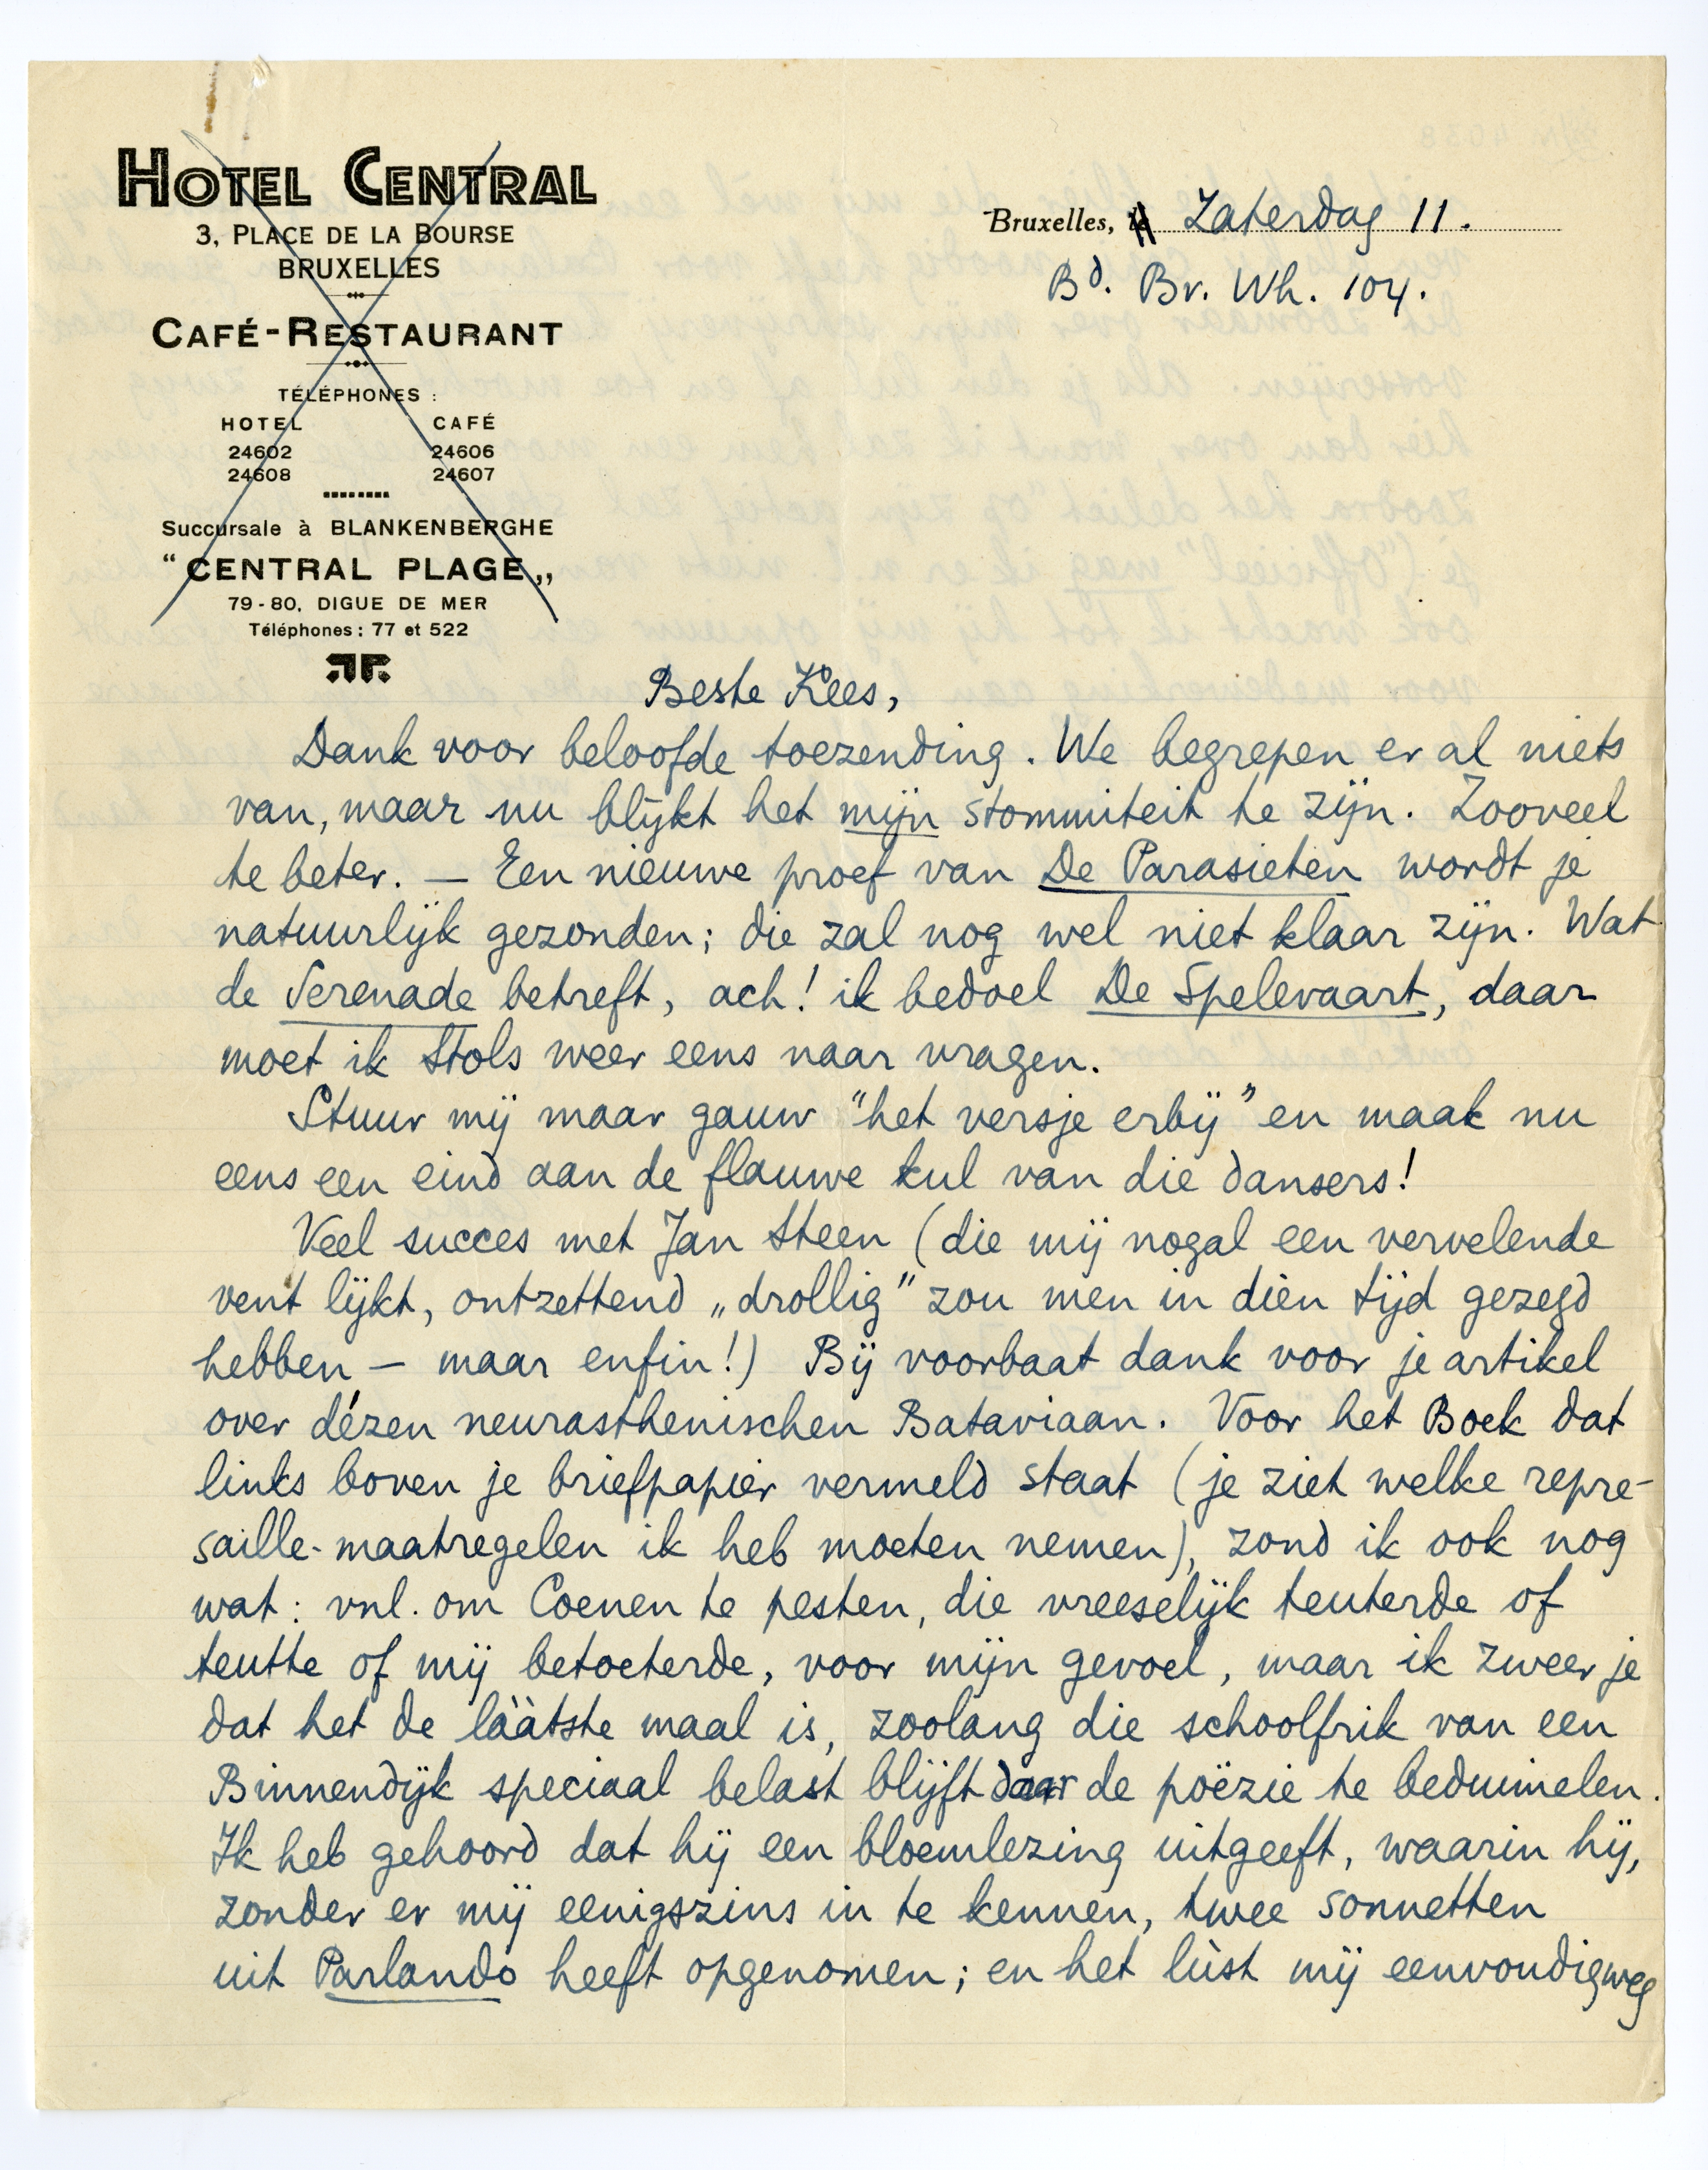 HOTEL CENTRAL
3, PLACE DE LA BOURSE
BRUXELLES
CAFÉ-RESTAURANT
TÉLÉPHONES :
HOTEL CAFÉ
24602 24606
24608 24607
Succursale à BLANKENBERGHE
“CENTRAL PLAGE„
79-80, DIGUE DE MER
Téléphones : 77 et 522
Bruxelles, le Zaterdag 11.
Bd. Br. Wh. 104.
Beste Kees,
Dank voor beloofde toezending. We begrepen er al niets
van, maar nu blijkt het mijn stommiteit te zijn. Zooveel
te beter. — Een nieuwe proef van De Parasieten wordt je
natuurlijk gezonden; die zal nog wel niet klaar zijn. Wat
de Serenade betreft, ach! ik bedoel De Spelevaart, daar
moet ik Stols weer eens naar vragen.
Stuur mij maar gauw “het versje erbij” en maak nu
eens een eind aan de flauwe kul van die dansers!
Veel succes met Jan Steen (die mij nogal een vervelende
vent lijkt, ontzettend „drollig” zou men in dièn tijd gezegd
hebben — maar enfin!) Bij voorbaat dank voor je artikel
over dézen neurasthenischen Bataviaan. Voor het Boek dat
links boven je briefpapier vermeld staat (je ziet welke repre-
saille-maatregelen ik heb moeten nemen), zond ik ook nog
wat: vnl. om Coenen te pesten, die vreeselijk teuterde of
teutte of mij betoeterde, voor mijn gevoel, maar ik zweer je
dat het de lààtste maal is, zoolang die schoolfrik van een
Binnendijk speciaal belast blijft daar de poëzie te beduimelen.
Ik heb gehoord dat hij een bloemlezing uitgeeft, waarin hij,
zonder er mij eenigszins in te kennen, twee sonnetten
uit Parlando heeft opgenomen; en het lùst mij eenvoudigweg